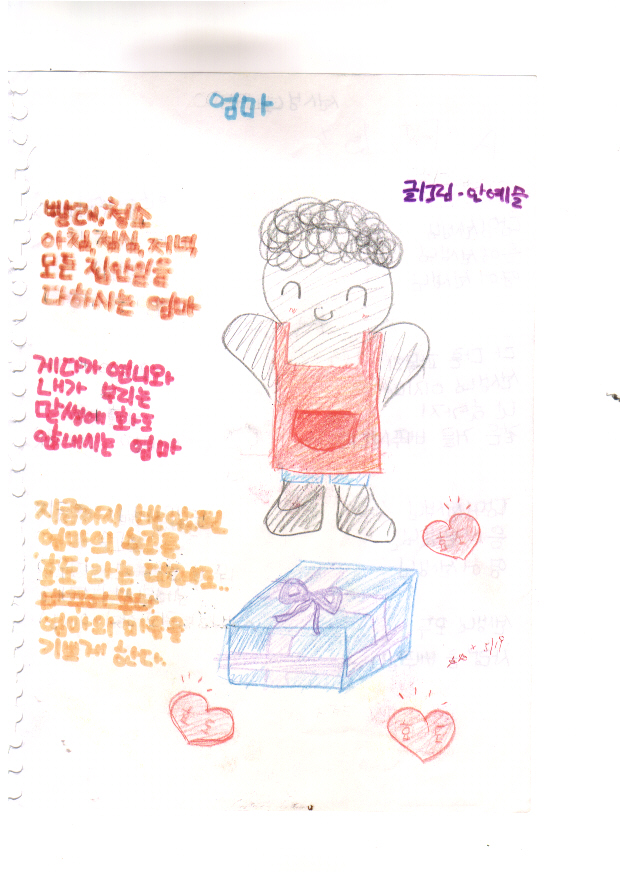 엄마
글/그림 - 안예슬
빨래, 청소
아침, 점심, 저녁
모든 집안일을
다하시는 엄마
게다가 언니와
내가 부리는
말썽에 화도
안내시는 엄마
지금까지 받았던
엄마의 수고를
'효도'라는 답례로..
엄마의 마음을
기쁘게 한다.
효도
효도
효도